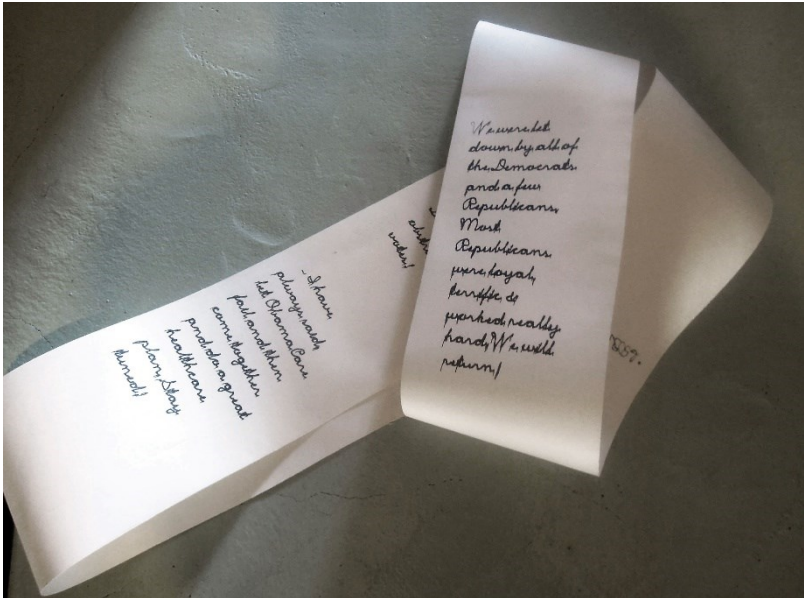 We were let
down by all of
the Democrats
and a few
Republicans.
Most
Republicans
were loyal,
terrific &
worked really
hard. We will
return!
votes!
-I have
always said,
let ObamaCare
fail and then
come together
and do a great
healthcare
plan. Stay
tuned!